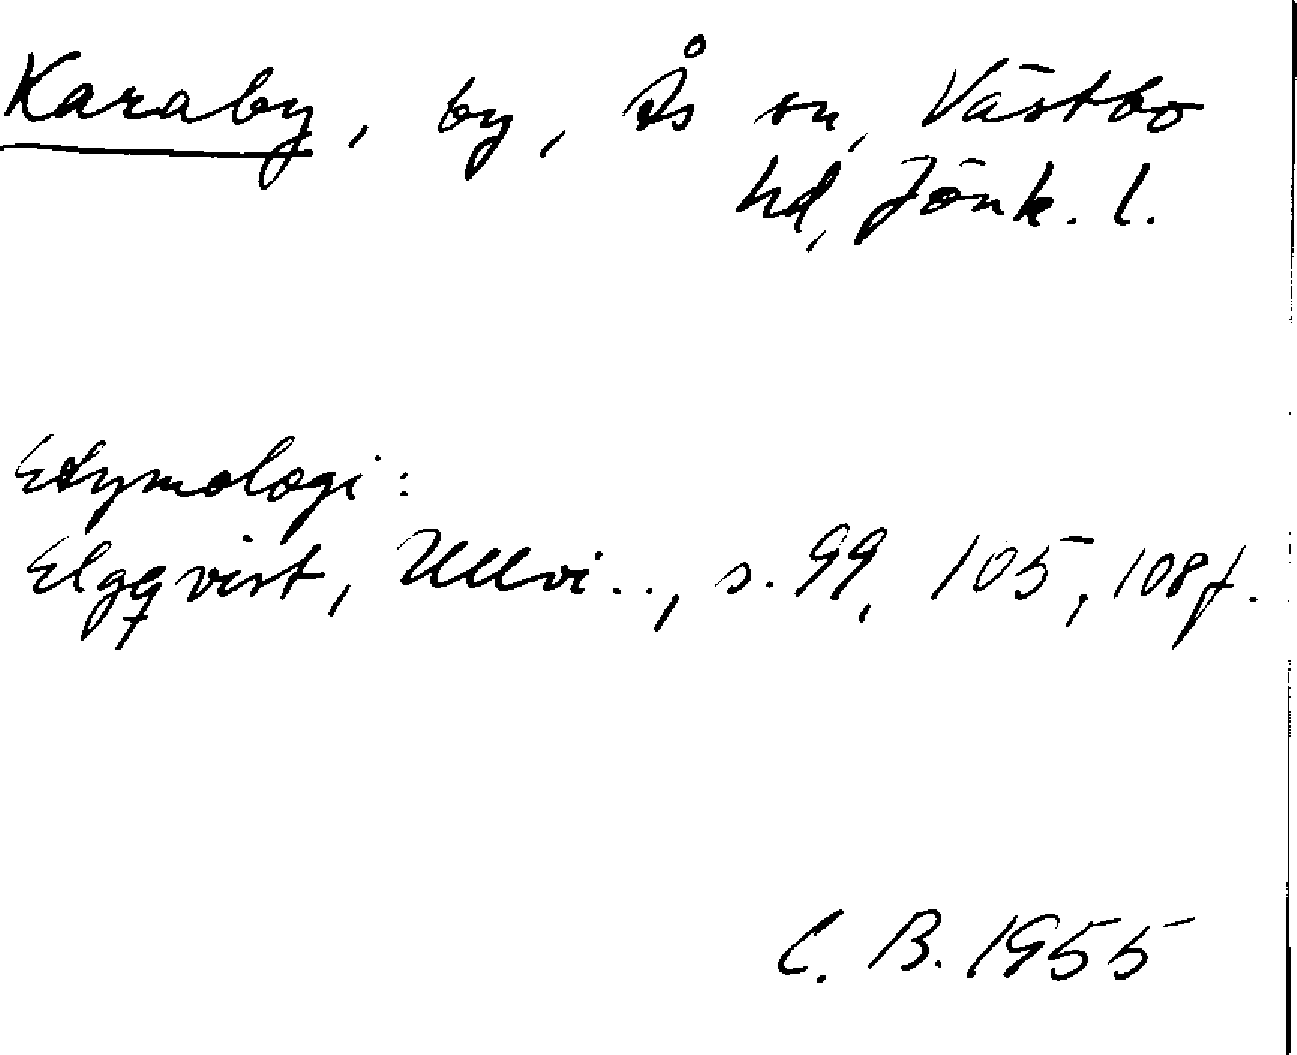 Karaby, by, Ås sn, Västbo
hd, Jönk. l.
Etymologi:
Elgqvist, Ullvi.., s. 99, 105, 108f.
C. B. 1955